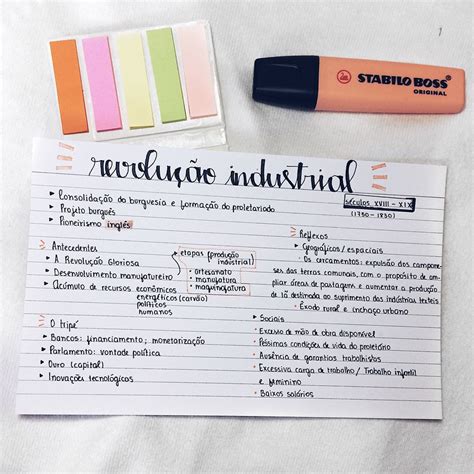 STABILO BOSS
ORIGINAL
revolução industrial
séculos XVIII - XIX
(1750 - 1850)
Consolidação da burguesia e formação do proletariado
Projeto burguês
Pioneirismo inglês
Antecedentes
A Revolução Gloriosa
Desenvolvimento manufatureiro
Acúmulo de recursos econômicos
energéticos (carvão)
políticos
humanos
etapas (produção
industrial)
• artesanato
• manufatura
• maquinofatura
O tripé
Bancos: financiamento; monetarização
Parlamento: vontade política
Ouro (capital)
Inovações tecnológicas
Reflexos
Geográficos / espaciais
Os cercamentos: expulsão dos campone
ses das terras comunais, com o propósito de am
pliar áreas de pastagens e aumentar a produção
de lã destinada ao suprimento das indústrias têxteis
Êxodo rural e inchaço urbano
Sociais
Excesso de mão de obra disponível
Péssimas condições de vida do proletário
Ausência de garantias trabalhistas
Excessiva carga de trabalho / Trabalho infantil
e feminino
Baixos salários